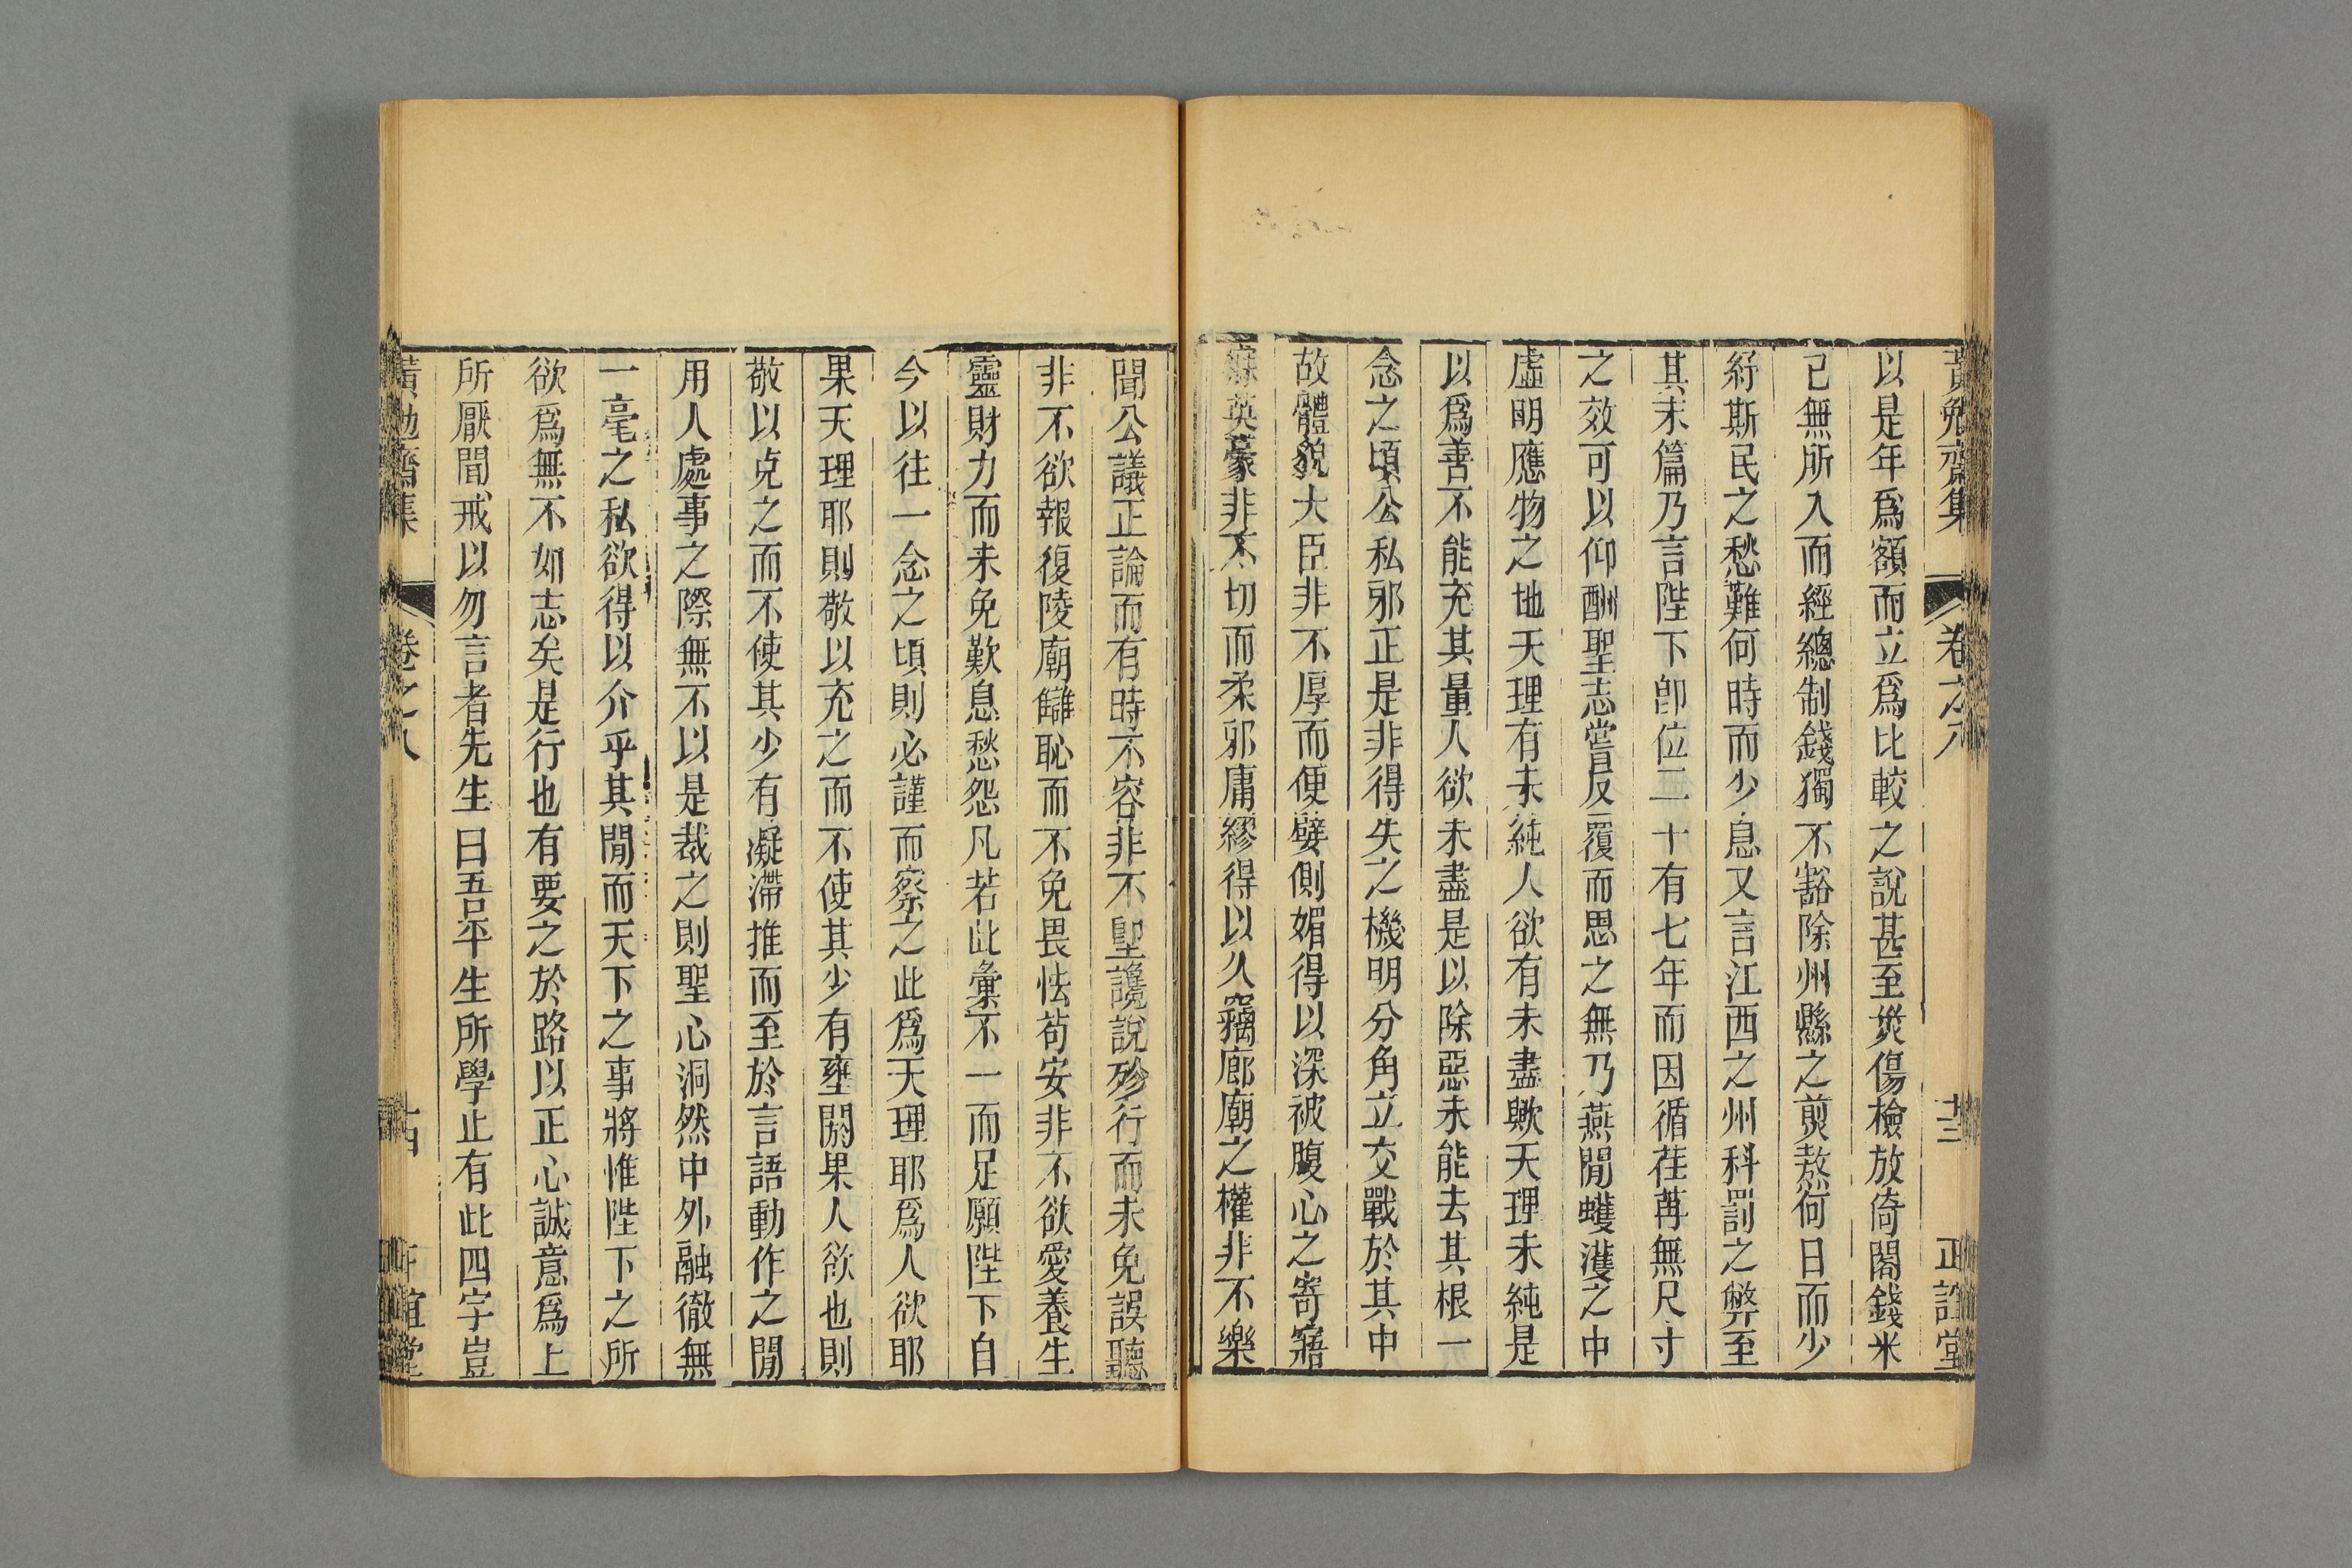 黃勉齋集 卷之八 正誼堂
以是年爲額而立爲比較之說甚至災傷檢放倚閣錢米
已無所入而經總制錢獨不豁除州縣之煎熬何日而少
紓斯民之愁難何時而少息又言江西之州科罰之弊至
其末篇乃言陛下卽位二十有七年而因循荏苒無尺寸
之效可以仰酬聖志嘗反覆而思之無乃燕閒蠖濩之中
虛明應物之地天理有未純人欲有未盡歟天理未純是
以爲善不能充其量人欲未盡是以除惡未能去其根一
念之頃公私邪正是非得失之機明分角立交戰於其中
故體貌大臣非不厚而便嬖側媚得以深被腹心之寄寤
寐英豪非不切而柔邪庸繆得以久竊廊廟之權非不樂
聞公議正論而有時不容非不堲讒說殄行而未免誤聽
非不欲報復陵廟讎恥而不免畏怯苟安非不欲愛養生
靈財力而未免歎息愁怨凡若此彙不一而足願陛下自
今以往一念之頃則必謹而察之此爲天理耶爲人欲耶
果天理耶則敬以充之而不使其少有壅閼果人欲也則
敬以克之而不使其少有凝滯推而至於言語動作之閒
用人處事之際無不以是裁之則聖心洞然中外融徹無
一毫之私欲得以介乎其閒而天下之事將惟陛下之所
欲爲無不如志矣是行也有要之於路以正心誠意爲上
所厭聞戒以勿言者先生曰吾平生所學止有此四字豈
黃勉齋集 卷之八 正誼堂